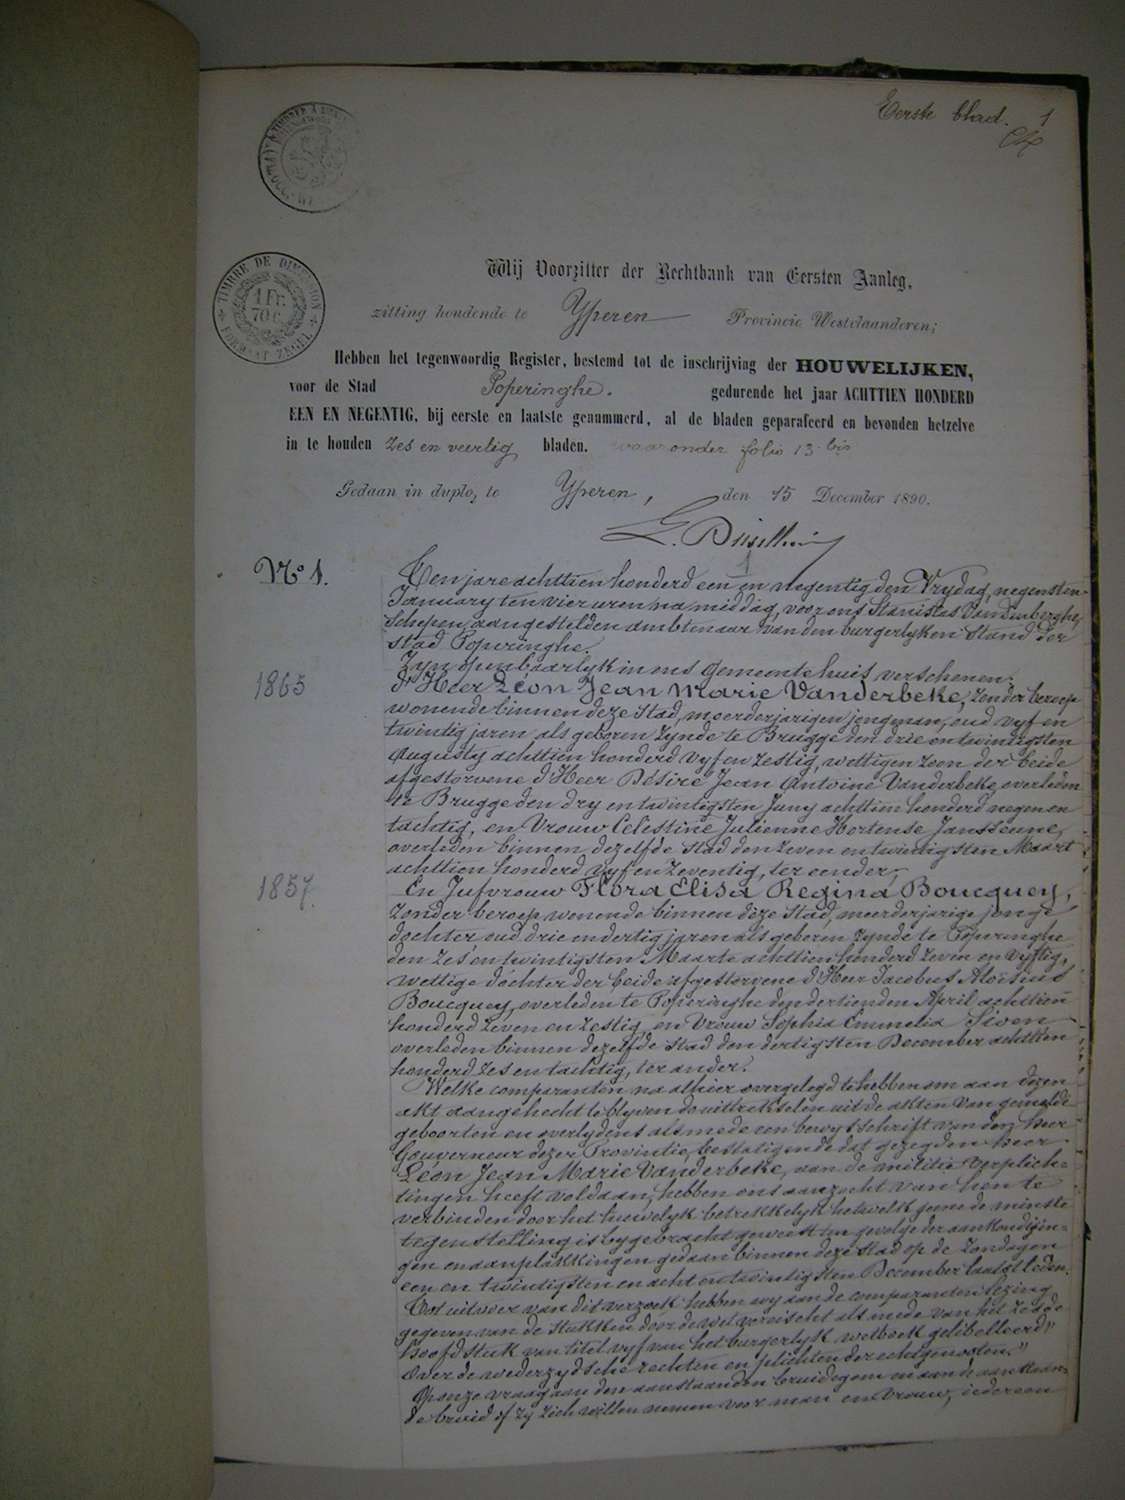 Eerste blad. 1
TIMBRE DE DIMENSION
1 Fr.
70 c.
FORMAAT ZEGEL
Wij Voorzitter der Rechtbank van Eersten Aanleg,
zitting houdende te Yperen Provincie Westvlaanderen;
Hebben het tegenwoordig Register, bestemd tot de inschrijving der HOUWELIJKEN,
voor de Stad Poperinghe. gedurende het jaar ACHTTIEN HONDERD
EEN EN NEGENTIG, bij eerste en laatste genummerd, al de bladen geparafeerd en bevonden hetzelve
in te houden zes en veertig bladen. waaronder folio 13 bis
Gedaan in duplo, te Yperen, den 15 December 1890.
N° 1.
Ten jare achttien honderd een en negentig den Vrydag, negensten
January ten vier uren na middag, voor ons Stanislas Vandenberghe,
Schepen, aangestelden ambtenaar van den burgerlyken Stand der
stad Poperinghe.
Zyn openbaarlyk in ons gemeentehuis verschenen:
1865
d'Heer Léon Jean Marie Vanderbeke, zonder beroep
wonende binnen deze Stad, meerderjarigen jongman, oud vyf en
twintig jaren als geboren zynde te Brugge den drie en twintigsten
Augusty achttien honderd vyf en zestig, wettigen zoon der beide
afgestorvene d'Heer Désiré Jean Antoine Vanderbeke, overleden
te Brugge den dry en twintigsten Juny achttien honderd negen en
tachtig, en Vrouw Célestine Julienne Hortense Jansseune,
overleden binnen dezelfde stad den zeven en twintigsten Maart
achttien honderd vyf en zeventig, ter eender,
1857.
En Jufvrouw Flora Elisa Regina Boucquey,
zonder beroep wonende binnen deze Stad, meerderjarige jonge
dochter oud drie en dertig jaren als geboren zynde te Poperinghe
den zes en twintigsten Maarte achttien honderd zeven en vyftig,
wettige dochter der beide afgestorvene d'Heer Jacobus Aloïsius
Boucquey, overleden te Poperinghe den dertienden April achttien
honderd zeven en zestig, en Vrouw Sophia Emmelia Sioen
overleden binnen dezelfde stad den dertigsten December achttien
honderd zes en tachtig, ter ander.
Welke comparanten na alhier overgelegd te hebben om aan dezen
akt aangehecht te blyven de uittrekselen uit de akten van gemelde
geboorten en overlydens alsmede een bewysschrift van den heer
Gouverneur dezer Provintie, bestatigende dat gezegden heer
Léon Jean Marie Vanderbeke, aan de militie verplich-
tingen heeft voldaan, hebben ons aanzocht van hen te
verbinden door het huwelyk betrekkelyk hetwelk geene de minste
tegenstelling is bygebracht geweest ten gevolge der aankondigin-
gen en aanplakkingen gedaan binnen deze stad op de Zondagen
een en twintigsten en acht en twintigsten December laatst leden.
Oost uitwaer van dit verzoek hebben wy aan de comparanten lezing
gegeven van de stukken door de wet vereischt als mede van het zesde
hoofdstuk van titel vyf van het burgerlyk wetboek gelibelleerd "
Over de wederzydsche rechten en plichten der echtgenooten."
Op onze vraag aan den aanstaanden bruidegom en aan de aanstaan-
de bruid of zy zich willen nemen voor man en vrouw, iedereen